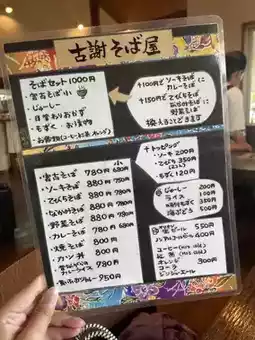 古謝そば屋
そばセット 1000円
・宮古そば 小
・じゅーしー
・日替わりおかず
・もずく ・お漬物
+100円で ソーキそば
カレーそば に
+150円で てびちそば
なかみそば
野菜そば に
換えることできます
小
・宮古そば 780円 680円
・ソーキそば 880円 780円
・てびちそば 880円 780円
・なかみそば 880円 780円
・野菜そば 880円 780円
・カレーそば 780円 680円
・焼そば 800円
・カツ丼 800円
カレーライス 780円
950円
+トッピング
・ソーキ 200円
・てびち 350円
・もずく 120円
・じゅーしー 200円
ライス 100円
350円
海ぶどう 500円
生ビール 550円
ノンアルコールビール 400円
コーヒー (Hot, Ice)
紅茶 (Hot, Ice)
オレンジ 300円
コーラ
ジンジャーエール